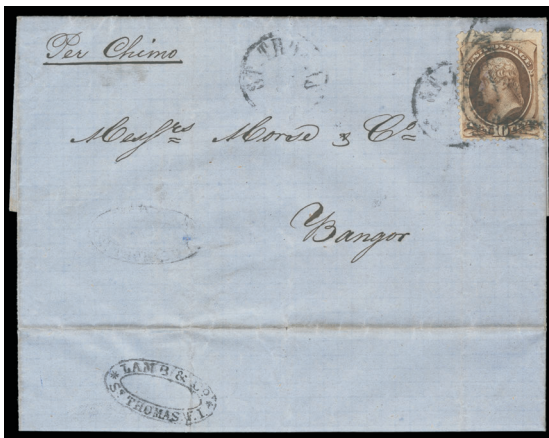 Per Chimo
ST. THOMAS
Messrs Morse & Co
Bangor
LAMB & Co
ST THOMAS V.I.